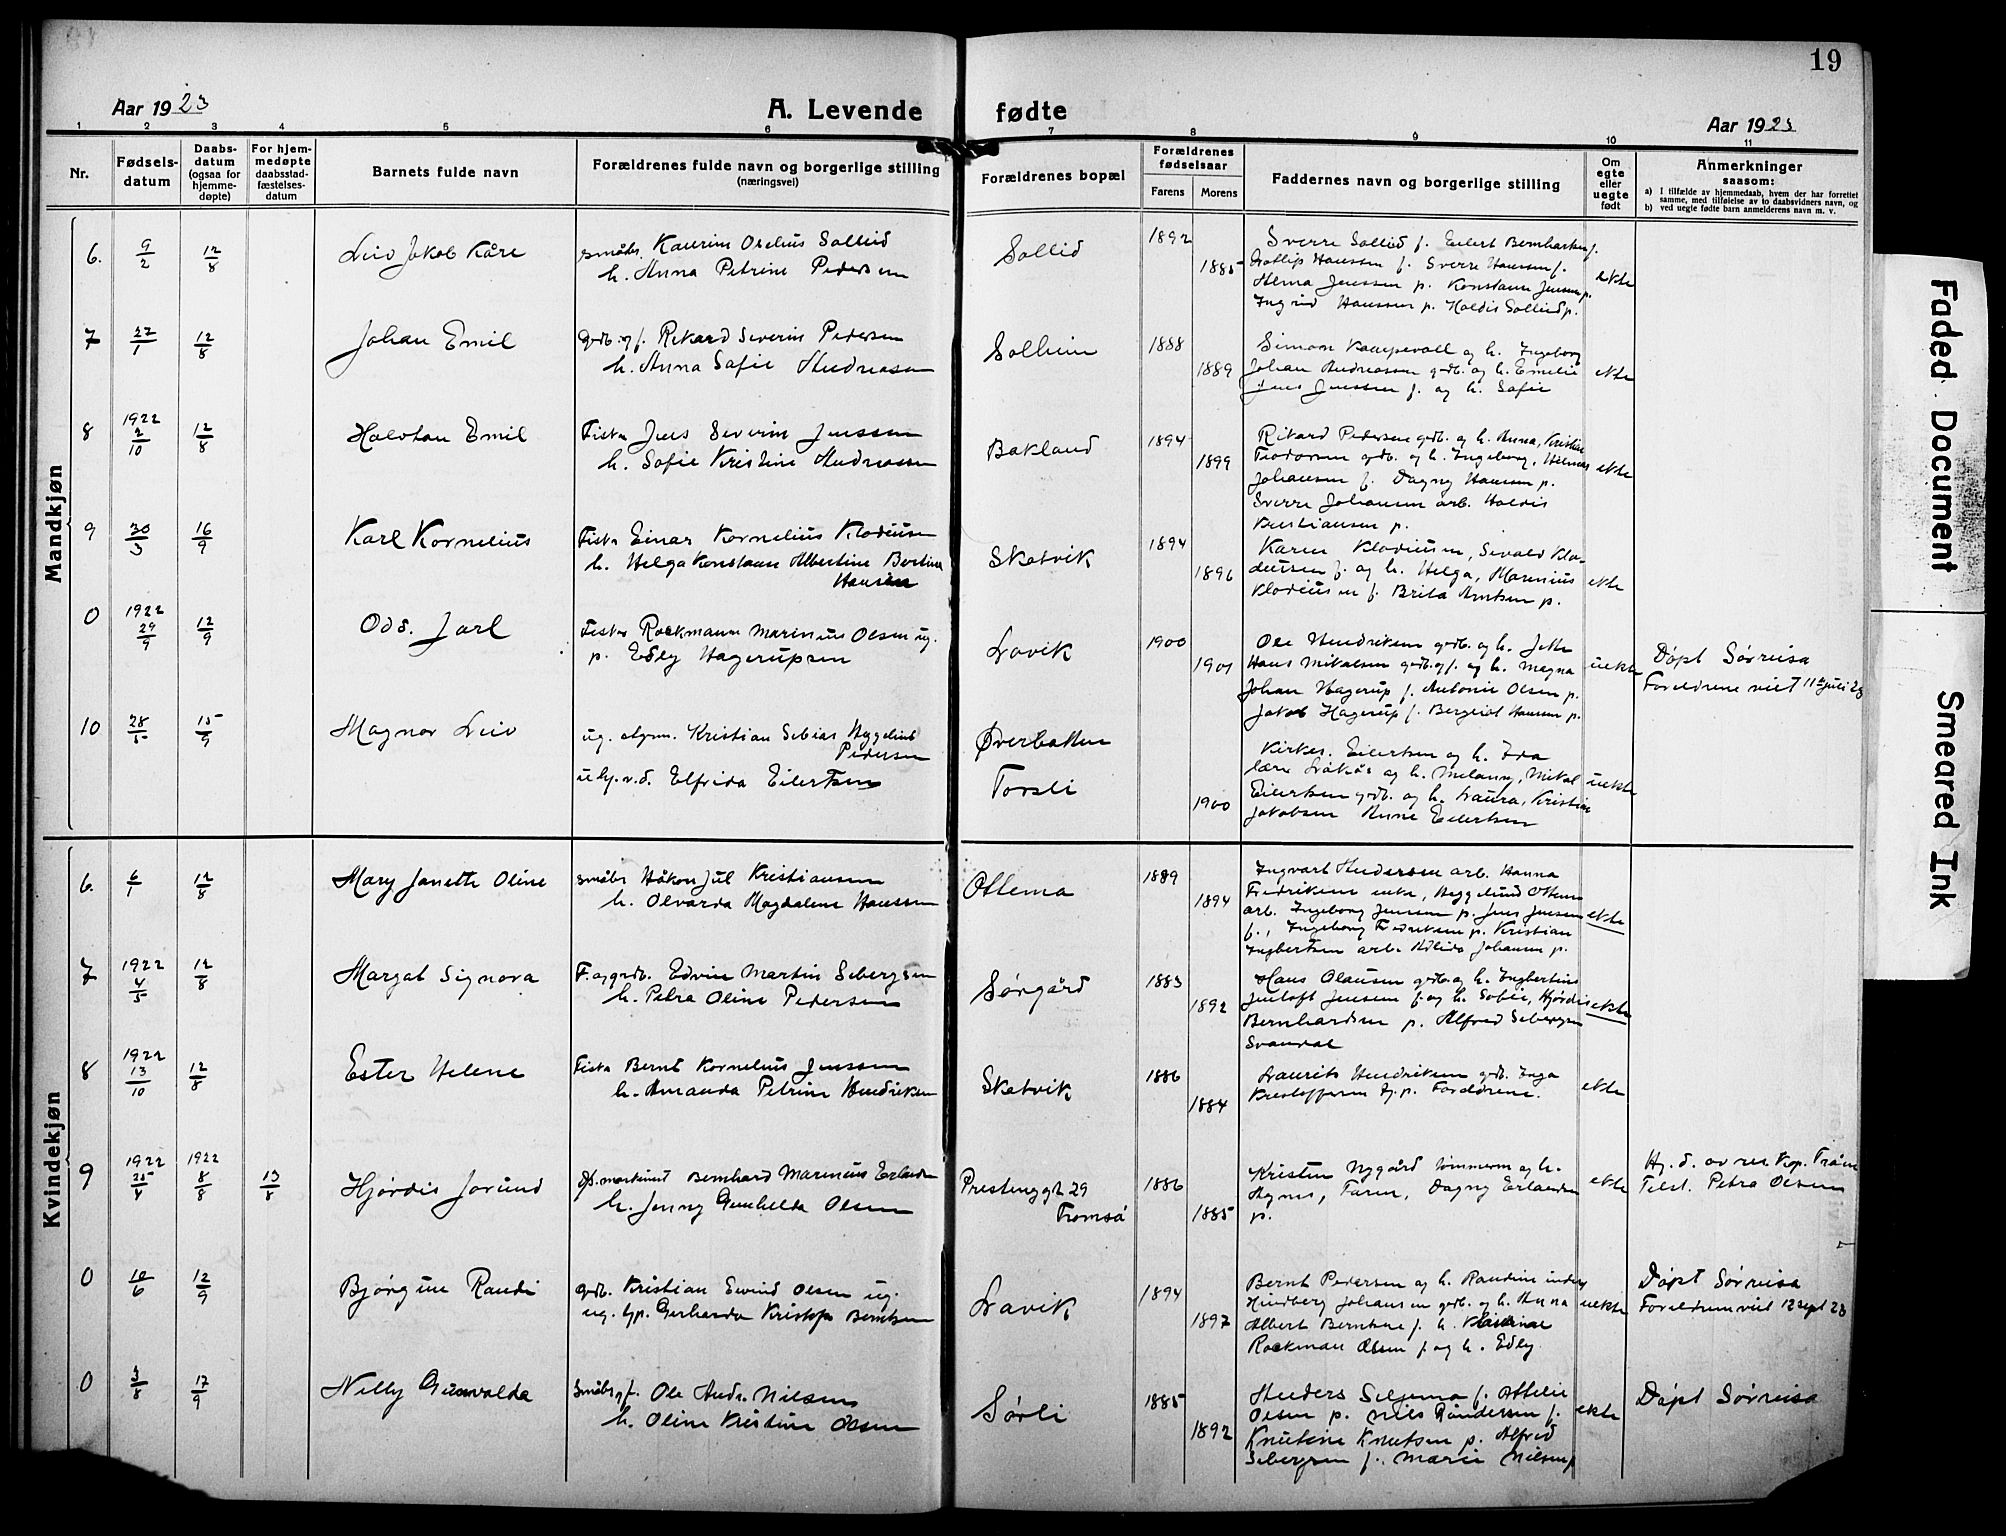 19
Aar 1923
A. Levende fødte
Aar 1923
1 2 3 4 5 6 7 8 9 10 11
Nr.
Fødselsdatum
Daabsdatum (ogsaa for hjemmedøpte)
For hjemmedøpte daabsstadfæstelsesdatum
Barnets fulde navn
Forældrenes fulde navn og borgerlige stilling
(næringsvei)
Forældrenes bopæl
Forældrenes fødselsaar
Farens Morens
Faddernes navn og borgerlige stilling
Om egte eller uegte født
Anmerkninger
saasom:
a) I tilfælde av hjemmedaab, hvem der har forrettet
samme, med tilføielse av to daabsvidners navn, og
b) ved uegte fødte barn anmelderens navn m. v.
Mandkjøn
6. 9/2 12/8 Leiv Jakob Kåre
småbr. Kaurin Orelius Sollid
h. Anna Petrine Pedersen
Sollid
1892
1885
Sverre Sollid f. Eilert Bernhartsen f.
Hanssen f. Sverre Hansen f.
Alma Jenssen p. Konstanse Jensen p.
Ingrid Hanssen p. Haldis Sollid p.
ekte
7 27/1 12/8 Johan Emil
gdb. og f. Rikard Severin Pedersen
h. Anna Safie Andreassen
Solheim
1888
1889
Simon Kampevoll og h. Ingeborg
Johan Andreassen gdb. og h. Emelie
Jens Jenssen f. og h. Safie
ekte
8 1922 2/10 12/8 Halvtan Emil
Fisker Jens Severin Jenssen
h. Sofie Kristine Andreassen
Bakland
1894
1899
Rikard Pedersen gdb. og h. Anna, Kristian
Teodorsen gdb. og h. Ingeborg, Hilmar
Johansen f. Dagny Hansen p.
Sverre Johansen arb. Haldis
Kristiansen p.
ekte
9 30/3 16/9 Karl Kornelius
Fisker Einar Kornelius Klodiussen
h. Helga Konstanse Albertine Bertine
Hansen
Skatvik
1894
1896
Karen Klodiussen, Sevald Klo-
diussen f. og h. Helga, Marenius
Klodiussen f. Brita Arntsen p.
ekte
0 1922 29/9 12/9 Odd. Jarl
Fisker Rockmann Marinius Olsen ug.
p. Edly Hagerupsen
Lavik
1900
1901
Ole Hendriksen gdb. og h. Jette
Hans Mikalsen gdb. og f. og h. Magna
Johan Hagerup f. Antonie Olsen p.
Jakob Hagerup f. Bergliot Hansen p.
uekte
Døpt Sørreisa
Foreldrene viet 11te juli 23
10 28/5 15/9 Magnor Leiv
ug. Kristian Sebias Hyggelius
Pedersen
Elfrida Eilertsen
Øverbotten
Torsli
1900
Kirkes. Eilertsen og h. Ida
lærer og h. Melanny, Mikal
Eilertsen gdb. og h. Laura, Kristian
Jakobsen Anne Eilertsen
uekte
Kvindekjøn
6. 6/1 12/8 Mary Janette Oline
småbr Håkon Jul Kristiansen
h. Olvarda Magdalene Hanssen
Ottemo
1889
1894
Ingvart Andersen arb. Hanna
Fredriksen enke, Hyggelund Ottemo
arb. Ingeborg Jensen p. Jens Jensen
f., Ingeborg Fredriksen p. Kristian
Ingbertsen arb. Alida Johansen p.
ekte
7 1922 4/5 12/8 Margot Signora
F. og gdb. Edvin Martin Sebergsen
h. Petra Oline Pedersen
Sørgård
1883
1892
Hans Olausen gdb. og h. Ingbertine
Jentoft Jensen f. og h. Sofie, Hjørdis
Bernhardsen p. Alfred Sebergsen
Svandal
ekte
8 1922 13/10 12/8 Ester Helene
Fisker Bernt Kornelius Jenssen
h. Amanda Petrine Hendriksen
Skatvik
1886
1884
Laurits Hendriksen gdb. Inga
Kristoffersen tj. p. Foreldrene.
ekte
9 1922 25/4 1922 8/8 13/8 Hjørdis Jorund
maskinist Bernhard Marinius Erlandsen
h. Jenny Gunhelda Olsen
Prestenggt 29
Tromsø
1886
1885
Kristen Nygård tømmerm og h.
Agnes, Faren, Dagny Erlandsen
p.
ekte
Hj. d. av res kap. Tromsø
Tilst. Petra Olsen
0 10/6 12/9 Bjørgine Randi
gdb. Kristian Eivind Olsen ug.
ug. tjp. Gerharda Kristofa Berntsen
Lavik
1894
1897
Bernt Pedersen og h. Randine
Hindberg Johansen gdb. og h. Anna
Albert Berntsen f. h. Katrine
Rockman Olsen f. og h. Edly
uekte
Døpt Sørreisa
Foreldrene viet 12 sept 23
0 3/8 17/9 Nelly Gunvalda
Småbr. og f. Ole Andr. Nilsen
h. Oline Kristine Olsen
Sørli
1885
1892
Anders Seljemo f. Ottelie
Olsen p. Nils Råndersen f.
Knutine Knutsen p. Alfred
Sebergsen f. Marie Nilsen p
ekte
Døpt Sørreisa
Faded Document
Smeared Ink